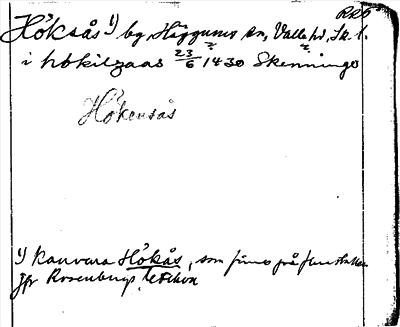 RRÖ
Höksås 1) by, Häggums sn, Valle hd, Sk. l.
i hökilzaas 23/6 1430 Skenninge
Hökensås
1) Kan vara Hökås, som finns på flera ställen
jfr Rosenbergs lexikon